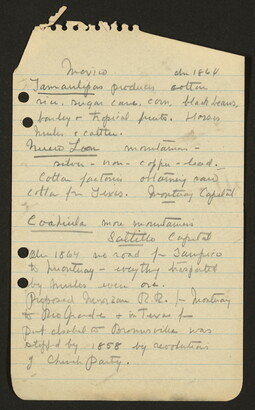 Mexico in 1864
Tamaulipas produces cotton
rice, sugar cane, corn black beans
barley & tropical fruits. Horses
mules & cattle.
Nuevo Leon mountains -
silver - iron - copper - lead.
Cotton factories obtaining raw
cotton fm Texas. Monterey Capital
Coahuila more mountainous
Saltillo Capital
In 1864 no road fm Tampico
to Monterey - everything transported
by mules even ore.
Proposed Mexican R.R. fm Monterey
to Rio Grande & in Texas fm
pt Isabel to Brownsville was
stopped by 1858 by revolutions
of Church Party.